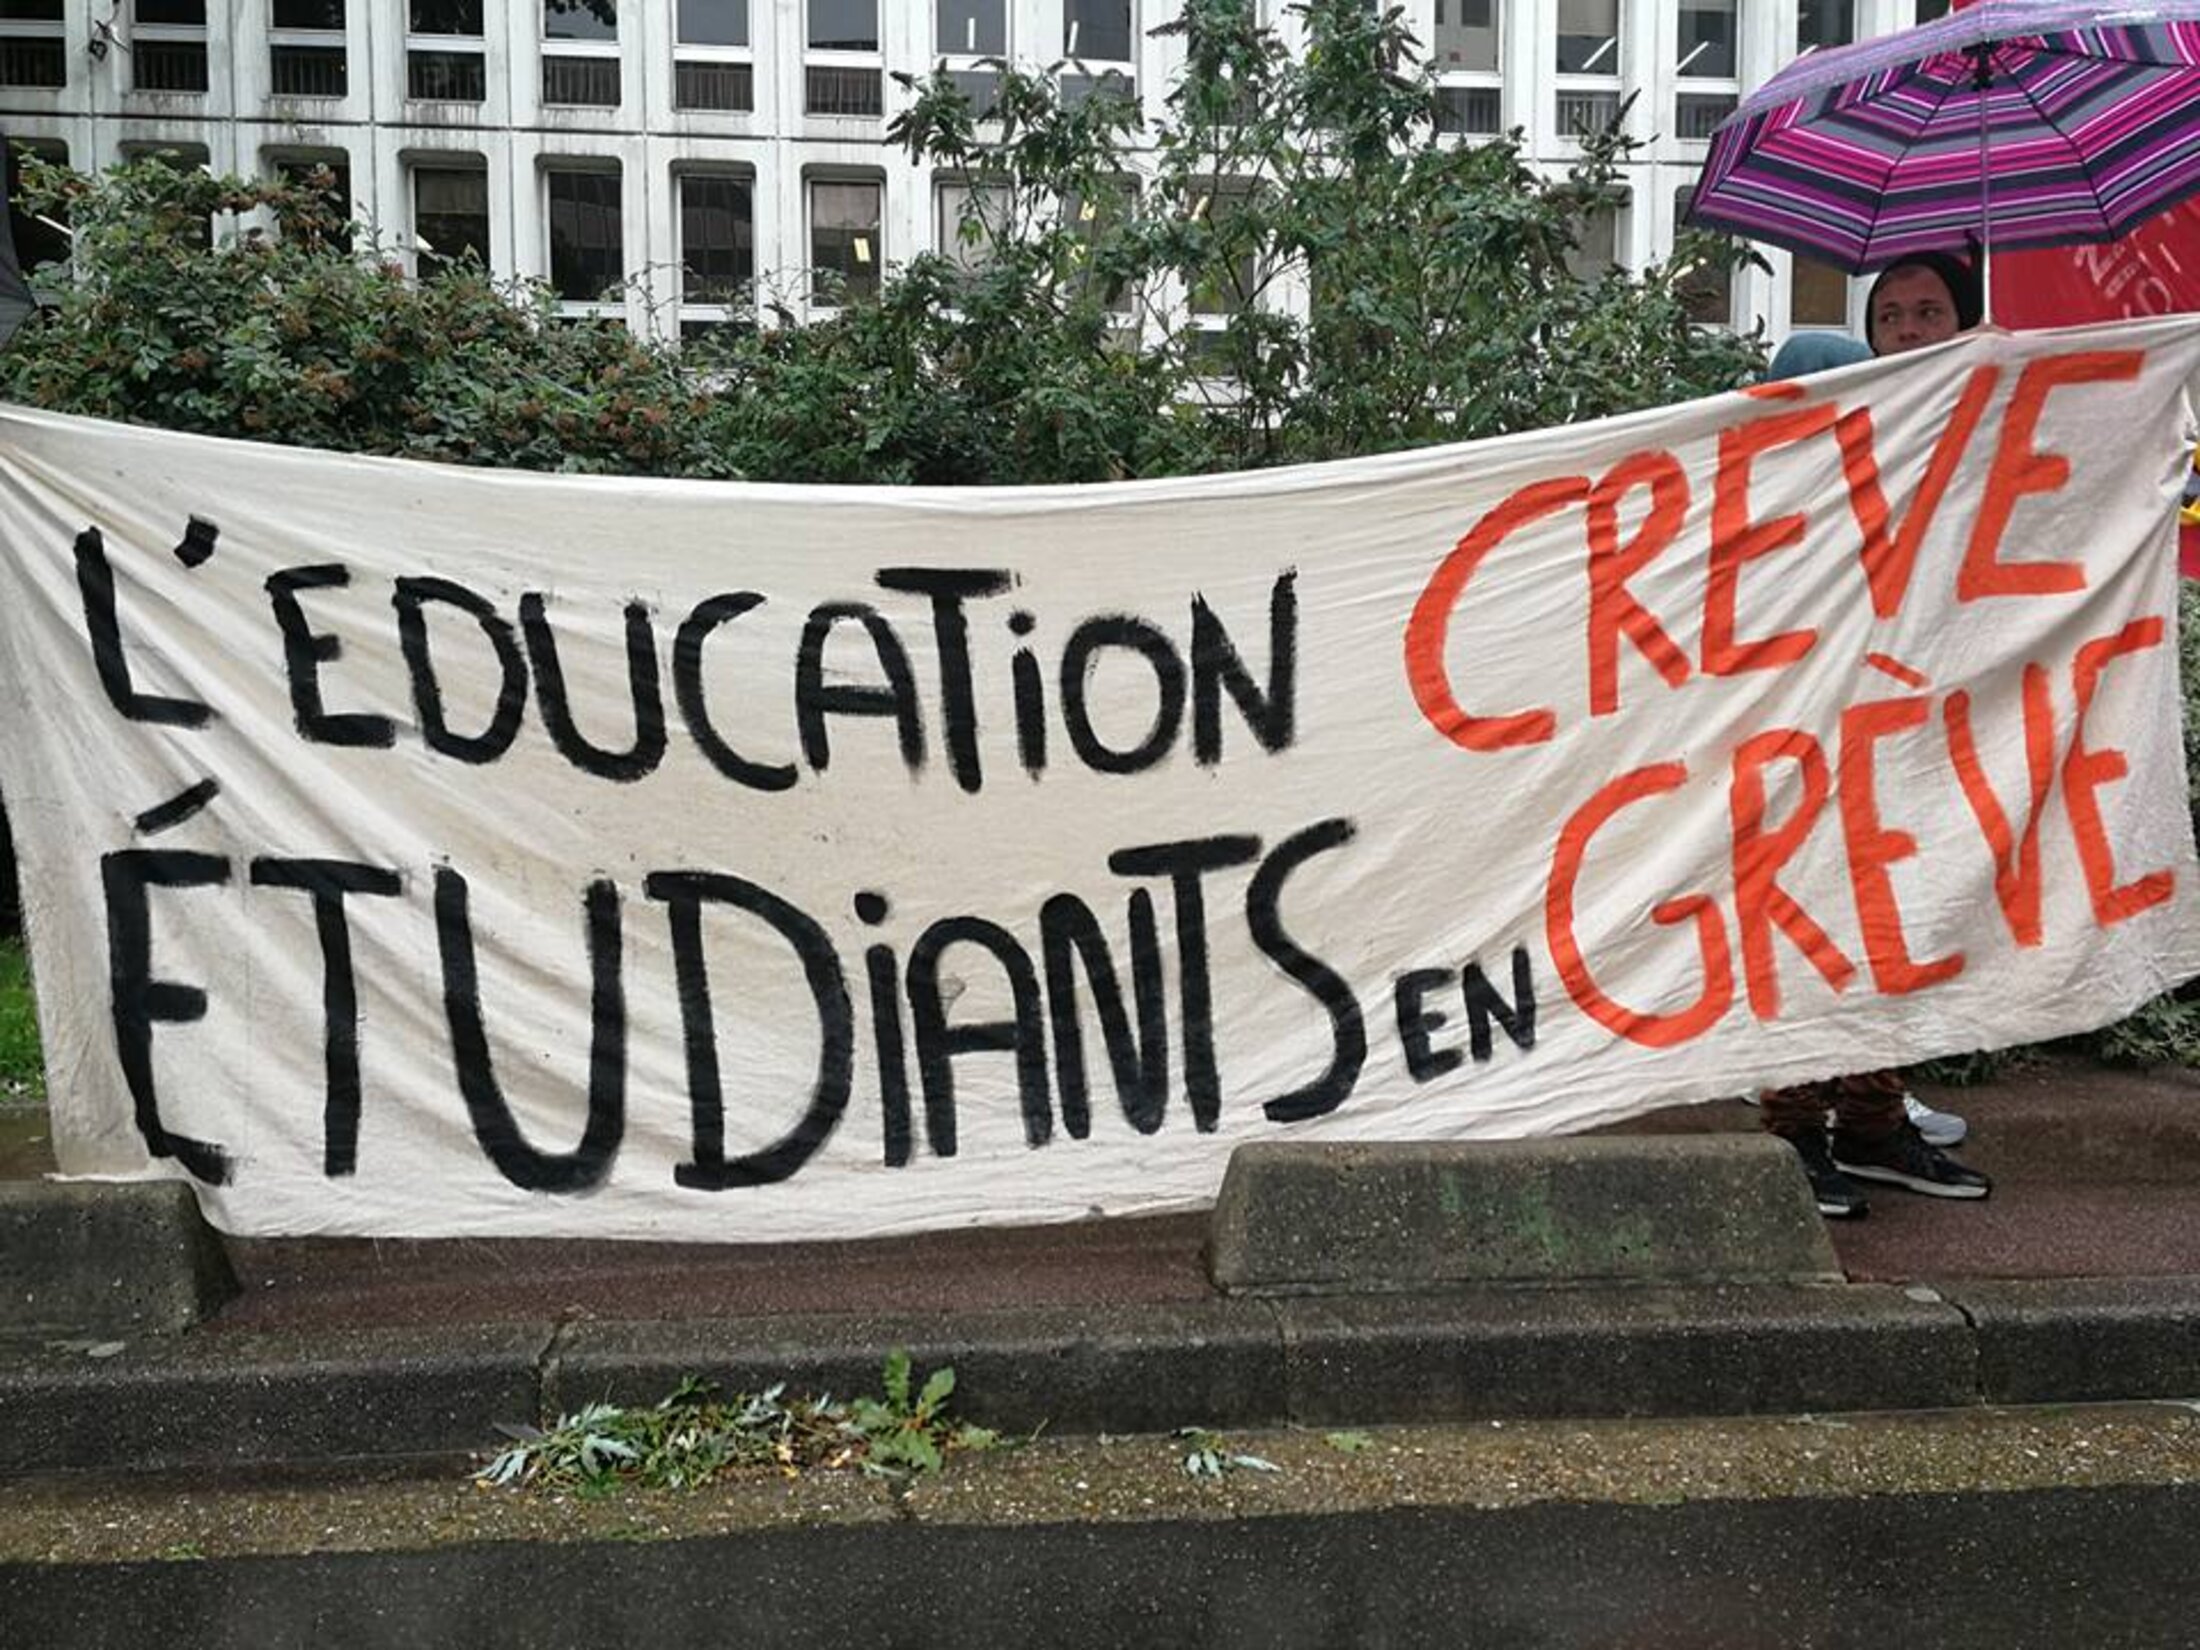 L'EDUCATiON CRÈVE
ÉTUDiANTS EN GRÈVE